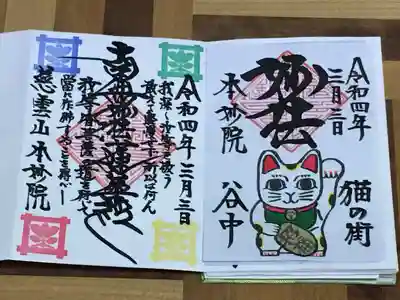 令和四年
三月三日
妙法
本妙院
猫の街
谷中
令和四年三月三日
我深く汝等を敬う
敢て軽慢せず所以は何ん
南無妙法蓮華経
汝等皆菩薩の道を行じて
當に作佛することを得べし
慈雲山 本妙院